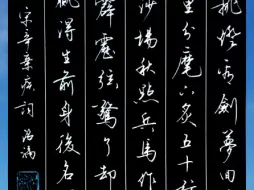 挑燈看劍夢回
里分麾下炙五十
沙場秋點兵馬作
霹靂弦驚了却
贏得生前身後名
宋辛棄疾詞